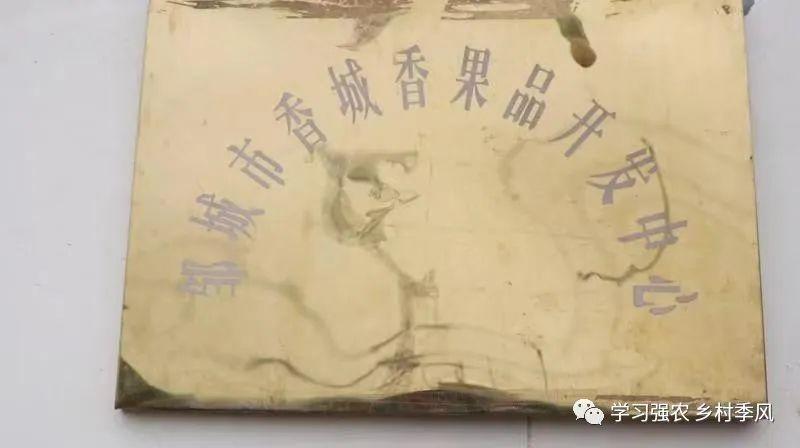 邹城市香城香果品开发中心
学习强农 乡村季风